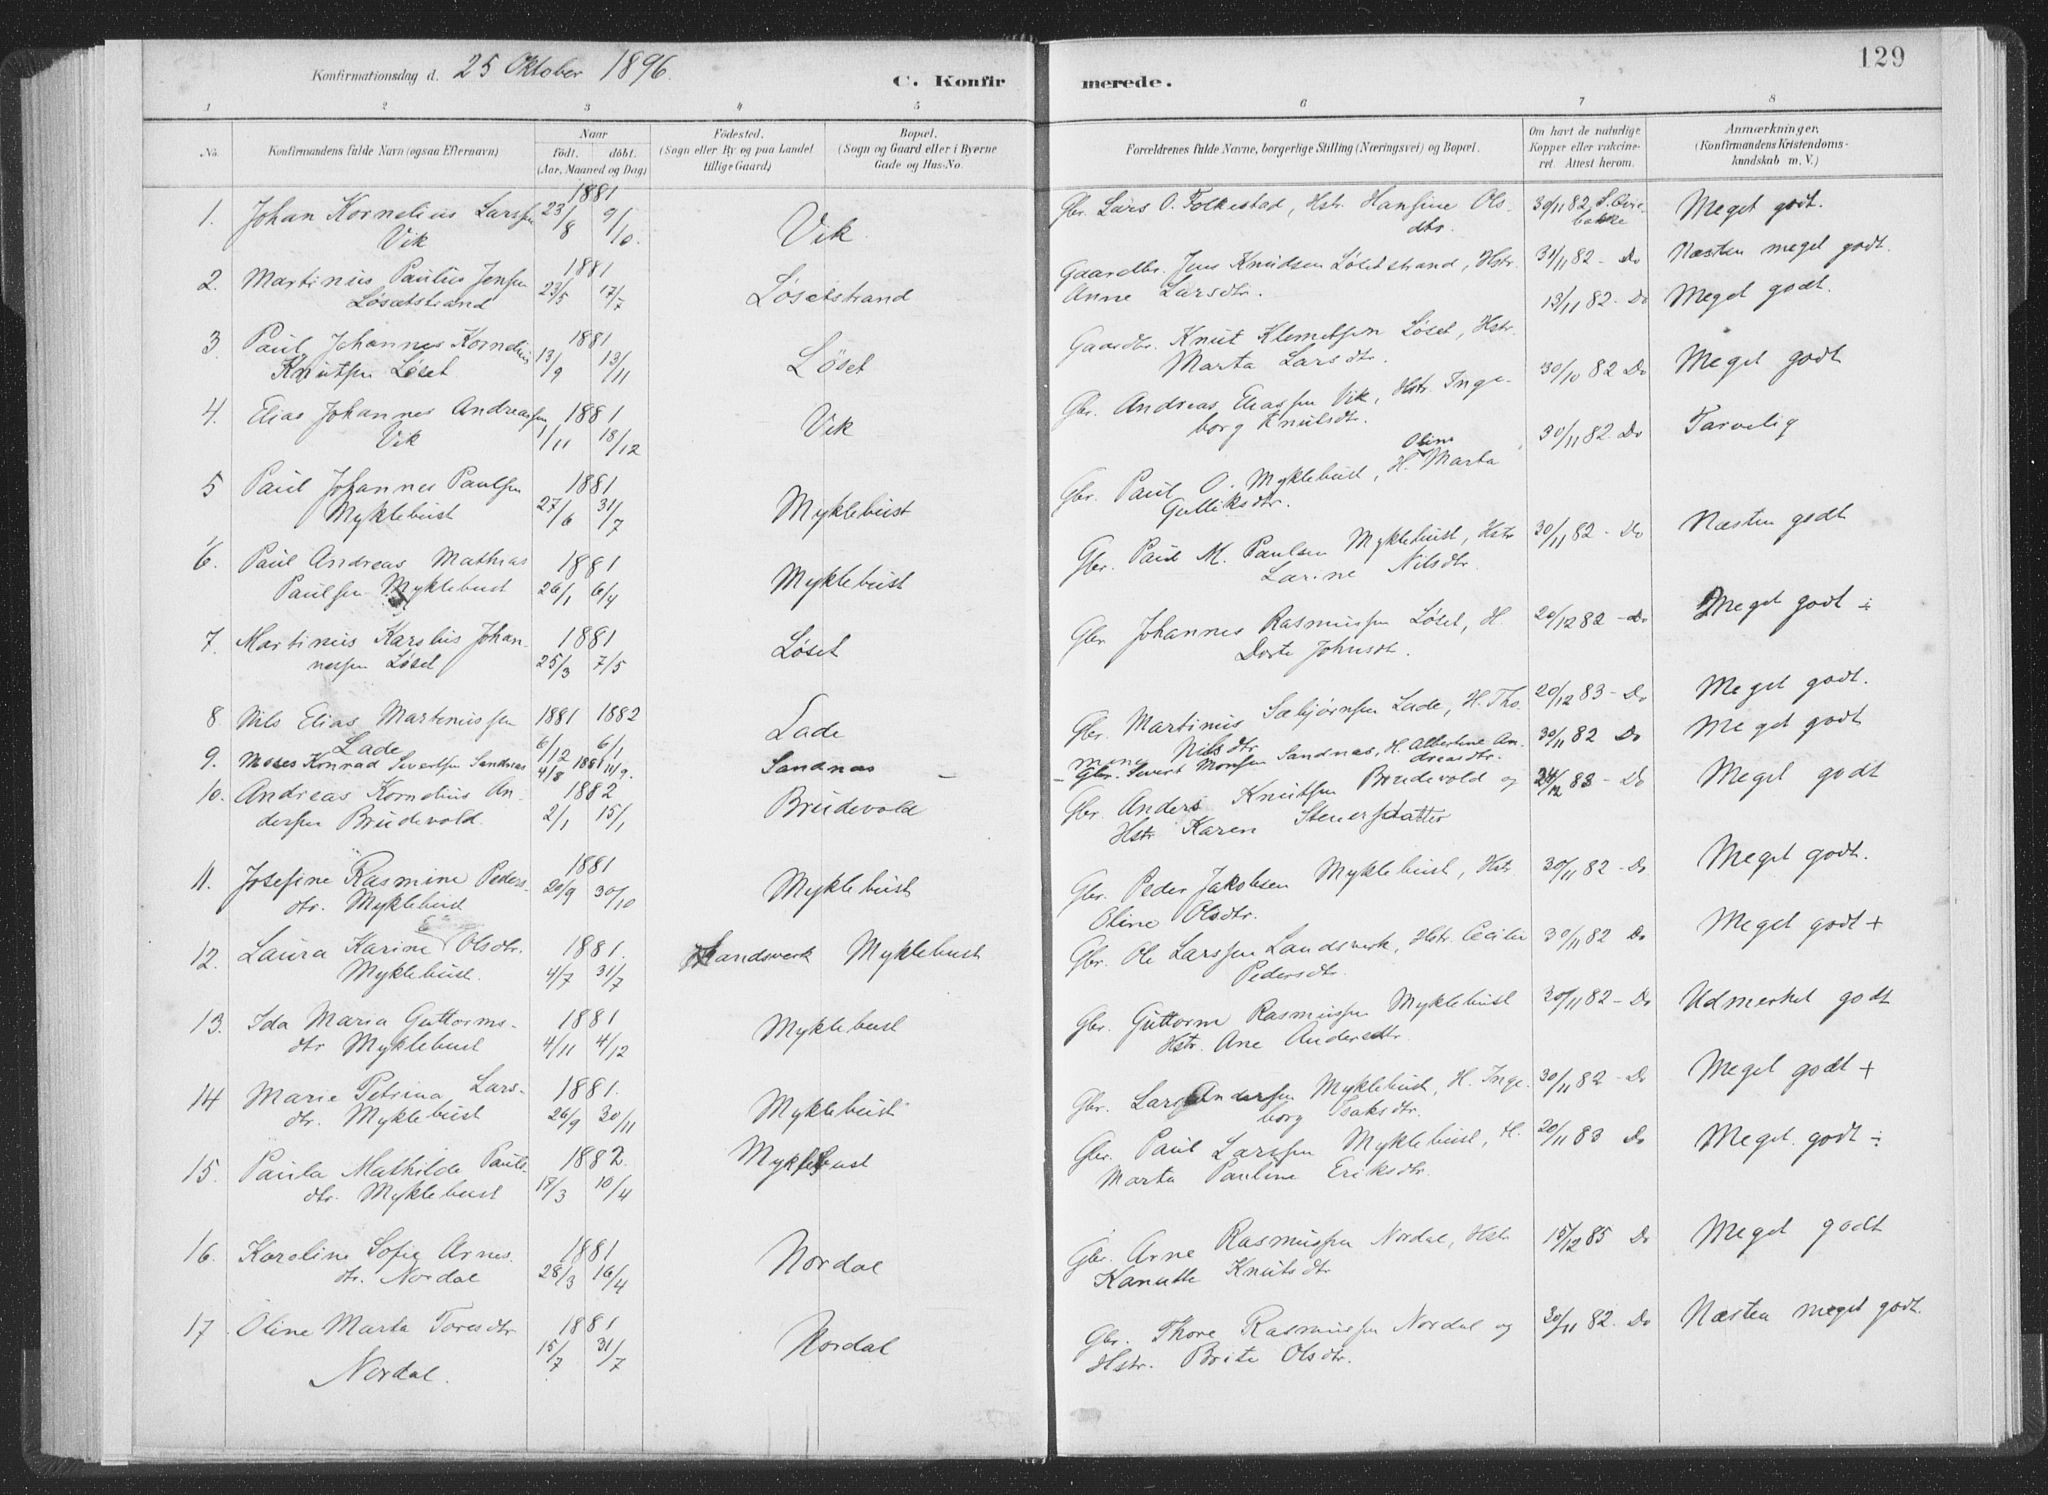 129
Konfirmationsdag d. 25 Oktober 1896.
C. Konfirmerede.
1 2 3 4 5 6 7 8
No. Konfirmandens fulde Navn (ogsaa Efternavn) Naar födt. döbt. (Aar, Maaned og Dag) Födested. (Sogn eller By og paa Landet tillige Gaard) Bopæl. (Sogn og Gaard eller i Byerne Gade og Hus-No. Forældrenes fulde Navne, borgerlige Stilling (Næringsvei) og Bopæl. Om havt de naturlige Kopper eller vakcineret. Attest herom. Anmærkninger, (Konfirmandens Kristendomskundskab m. V.)
1. Johan Kornelius Larssen 1881 23/8 9/10. Vik Gbr. Lars O. Folkestad, Hstr. Hansine Ols- 30/11 82, Meget godt.
Vik dtr.
2. Martinus Paulus Jensen 1881 23/5 17/7 Løsetstrand Gaardbr. Jens Knudsen Løsetstrand, Hstr. 31/11 82 - Do Næsten meget godt.
Løsetstrand Anne Larsdtr.
3 Paul Johannes Kornelius 1881 13/9 13/11 Löset Gaardbr. Knut Klemetsen Løset, Hstr. 13/11 82 - Do Meget godt.
Knutsen Løset Marta Larsdtr.
4. Elias Johannes Andreassen 1881 1/11 18/12 Vik Gbr. Andreas Eliassen Vik, Hstr. Inge- 30/10 82 Do Meget godt
Vik borg Knutsdtr.
5 Paul Johannes Paulsen 1881 27/6 31/7 Myklebust Gbr. Paul O. Myklebust, H. Marta Oline 30/11 82. Do Tarvelig
Myklebust Gulliksdtr.
6. Paul Andreas Mathias 1881 26/1 6/4 Myklebust Gbr. Paul M. Paulsen Myklebust, Hstr 30/11 82 - Do Næsten godt
Paulsen Myklebust Larine Nilsdtr.
7. Martinus Karolus Johan- 1881 25/3 7/5 Løset Gbr. Johannes Rasmussen Løset, H. 20/12 82 - Do Meget godt ÷
nessen Løset Dorte Johnsdt.
8. Nils Elias Martinussen 1881 1882 6/12 6/1 Lade Gbr. Martinus Sæbjørnsen Lade, H. Tho- 20/12 83 - Do Meget godt.
Lade mine Nilsdtr
9. Moses Konrad Sivertsen Sandnas 4/8 1881 11/9. Sandnas - Gbr. Sivert Monsen Sandnas, H. Albertine An- 30/11 82 Do Meget godt
dreasdtr.
10. Andreas Kornelius An- 1882 2/1 15/1 Brudevold Gbr. Anders Knutsen Brudevold og 24/12 83 - Do Meget godt
dersen Brudevold. Hstr. Karen Steffensdatter
11. Josefine Rasmine Peders- 1881 20/9 30/10 Myklebust Gbr. Peder Jakobsen Myklebust, Hstr. 30/11 82 - Do Meget godt.
dtr. Myklebust Oline Olsdtr.
12. Laura Karine Olsdtr. 1881. 4/7 31/7 Landsverk Myklebust Gbr. Ole Larssen Landsverk, Hstr. Cecilie 30/11 82 Do Meget godt +
Myklebust. Pedersdtr.
13. Ida Maria Guttorms- 1881 4/11 4/12 Myklebust Gbr. Guttorm Rasmussen Myklebust 30/11 82 - Do Udmerket godt
dtr Myklebust Hstr. Ane Andersdtr.
14 Marie Petrina Lars- 1881. 26/9 30/11 Myklebust Gbr. Lars Andersen Myklebust, H. Inge- 30/11 82 - Do Meget godt +
dtr. Myklebust borg Isaksdtr.
15. Paula Mathilde Pauls- 1882. 18/3 10/4 Myklebust Gbr. Paul Larssen Myklebust, H. 20/11 83 Do Meget godt ÷
dtr. Myklebust Marta Pauline Eriksdtr.
16. Karoline Sofie Arnes- 1881 28/3 16/4 Nordal Gbr. Arne Rasmussen Nordal, Hstr. 15/12 85 Do Meget godt
dtr. Nordal Kanutte Knutsdtr
17 Oline Marta Toresdtr 1881 15/7 31/7 Nordal Gbr. Thore Rasmussen Nordal og 30/11 82. Do Næsten meget godt.
Nordal. Hstr. Brite Olsdtr.